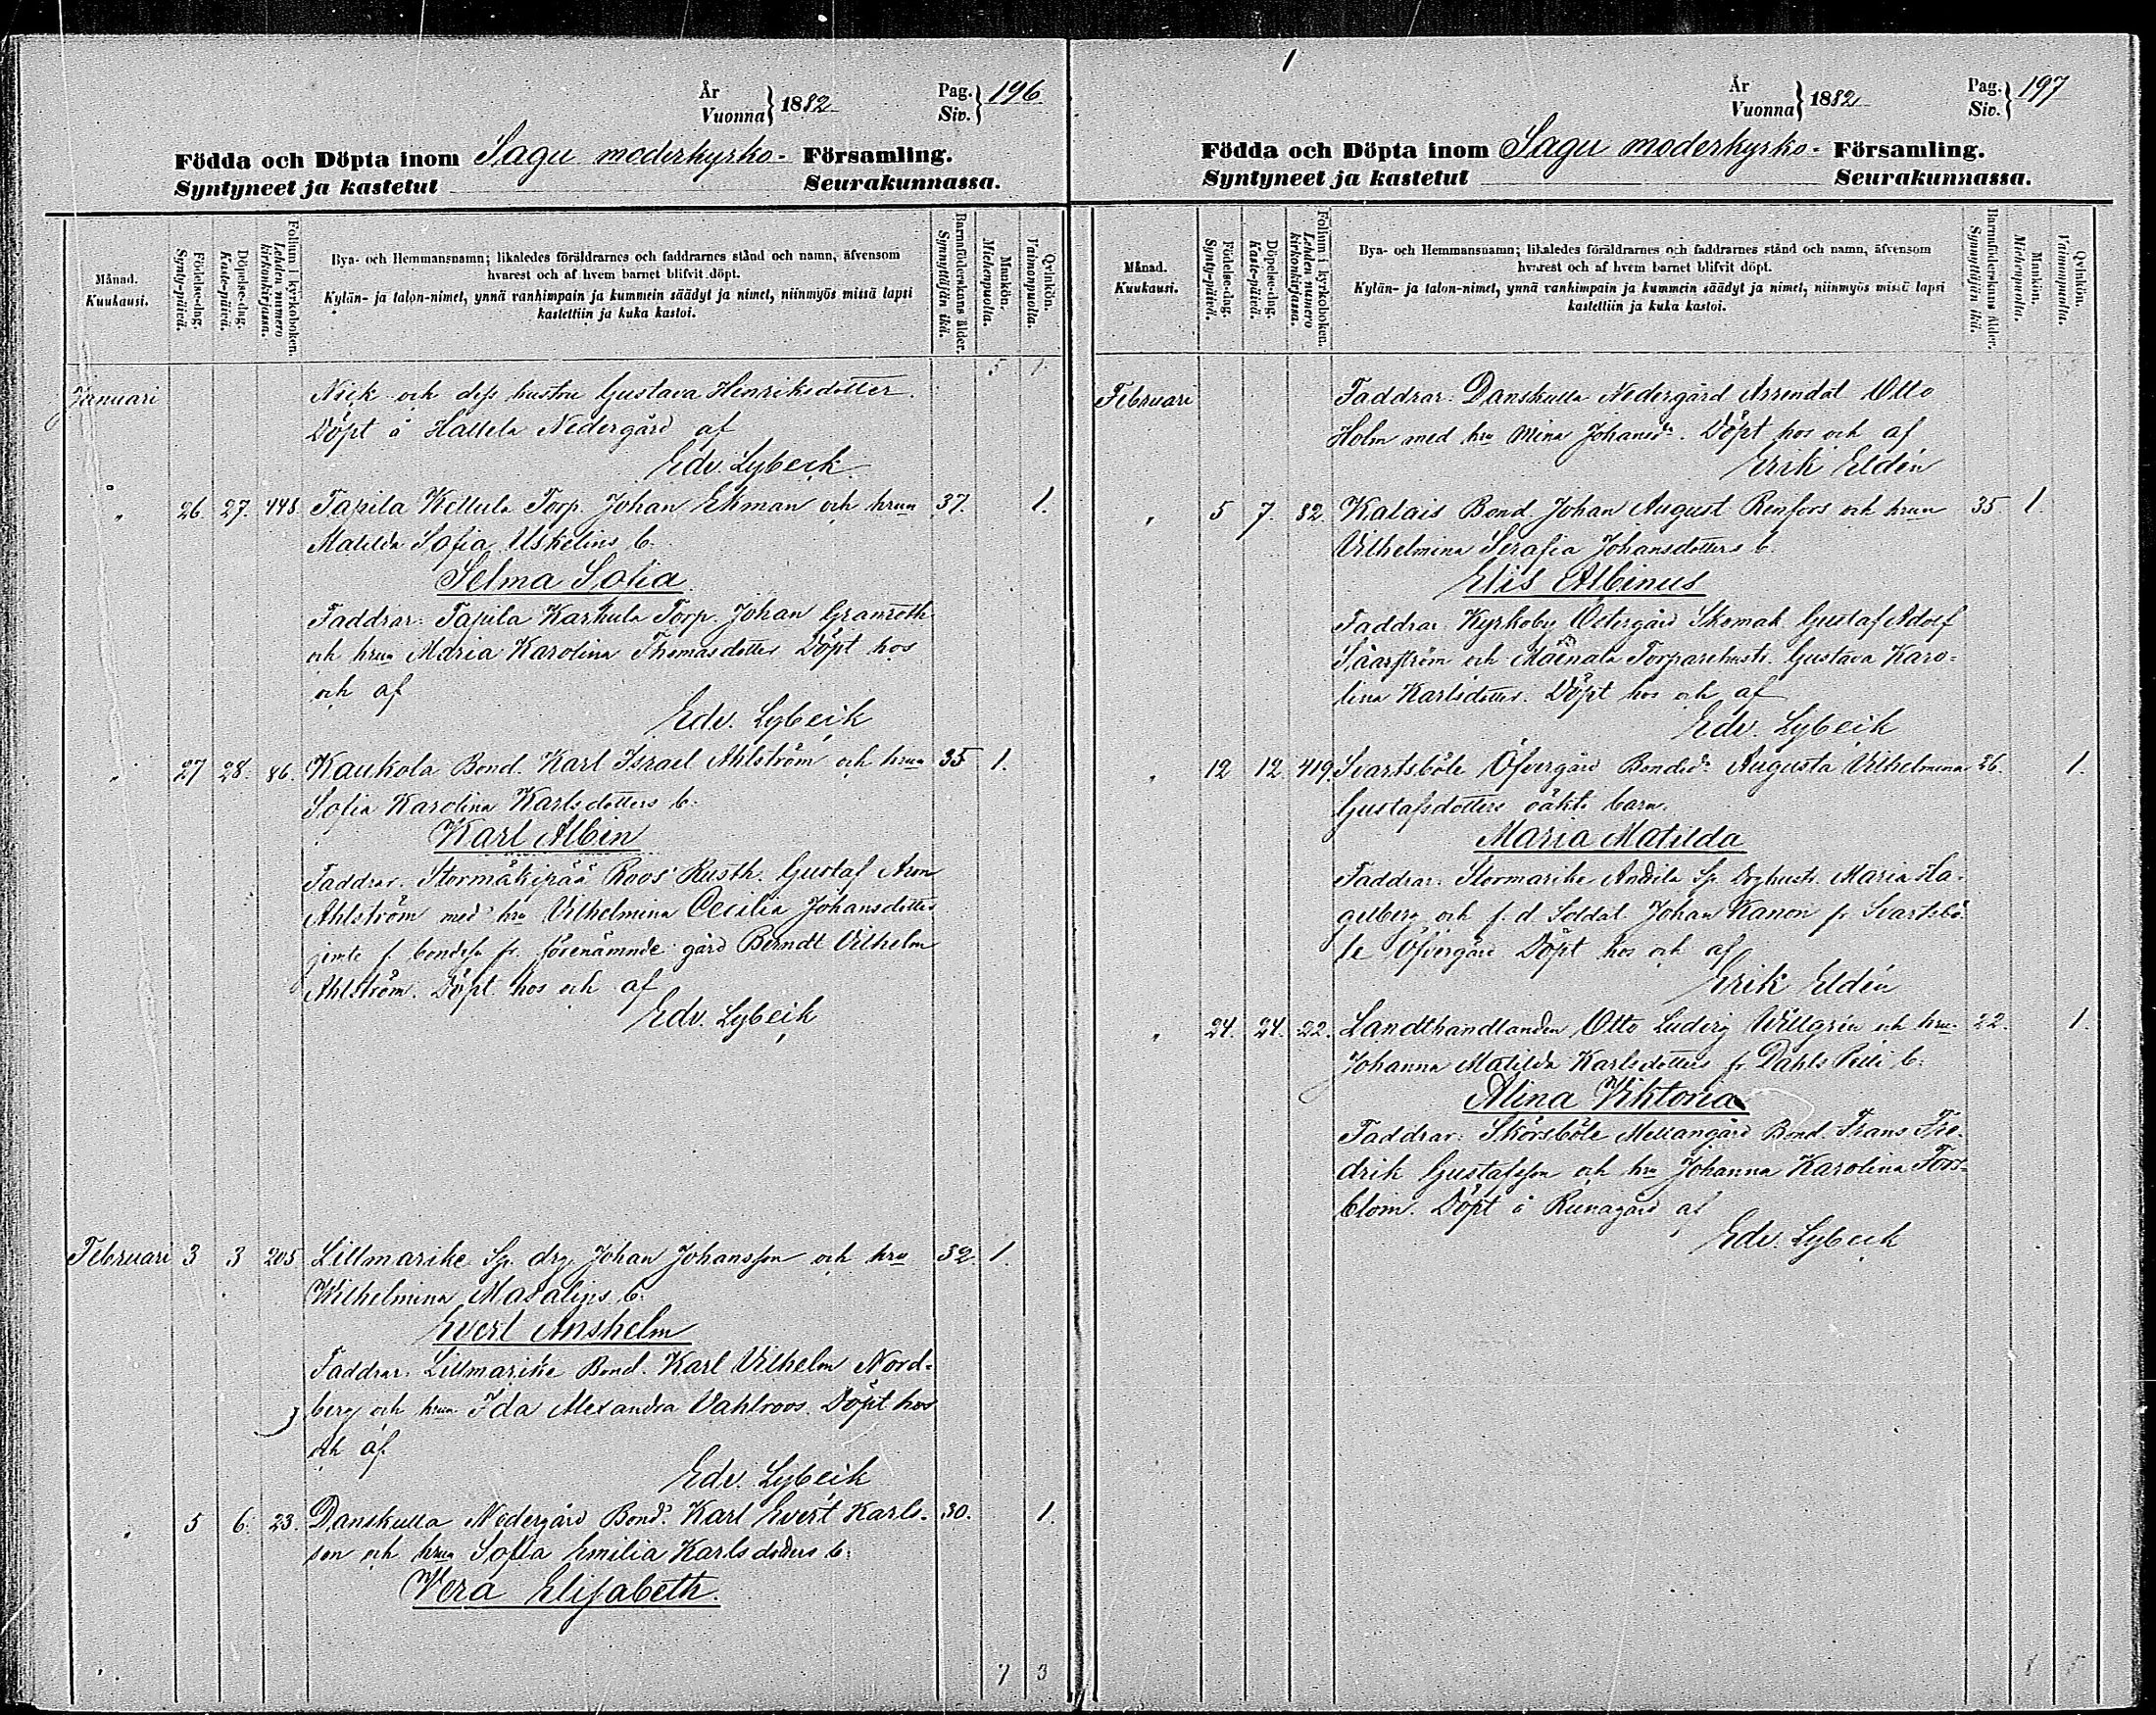 År
Vuonna } 1882
Pag.
Siv. } 196
Födda och Döpta inom Sagu moderkyrko- Församling.
Syntyneet ja kastetut Seurakunnassa.
Månad.
Kuukausi.
Födelse-dag.
Synty-päivä.
Döpelse-dag.
Kaste-päivä.
Folium i kyrkoboken.
Lehden numero kirkonkirjassa.
Bya- och Hemmansnamn; likaledes föräldrarnes och faddrarnes stånd och namn, äfvensom
hvarest och af hvem barnet blifvit döpt.
Kylän- ja talon-nimet, ynnä vanhimpain ja kummein säädyt ja nimet, niinmyös missä lapsi
kastettiin ja kuka kastoi.
Barnaföderskans ålder.
Synnyttäjän ikä.
Mankön.
Miehenpuolia.
Qvinkön.
Vaimonpuolia.
5 1.
Januari Nick och dess hustru Gustava Henriksdotter.
Döpt å Hallela Nedergård af
Edv. Lybeck
" 26. 27. 448. Tapila Kettula Torp. Johan Ekman och hrun 37. 1.
Matilda Sofia Uskelins b.
Selma Sofia
Faddrar: Tapila Karhula Torp. Johan Granroth
och hrun Maria Karolina Thomasdotter Döpt hos
och af
Edv. Lybeck
" 27 28. 86. Kaukola Bond. Karl Israel Ahlström och hrun 35 1.
Sofia Karolina Karlsdotters b.
Karl Albin
Faddrar. Stormälkipää Roos Rusth. Gustaf Aron
Ahlström med hru Vilhelmina Cecilia Johansdotter
jemte f. bondes. fr. förenämnde gård Berndt Vilhelm
Ahlström. Döpt hos och af
Edv. Lybeck
Februari 3 3 205 Lillmarike Sp. drg. Johan Johansson och hru 32. 1.
Wilhelmina Masalins b.
Evert Anshelm
Faddrar: Lillmarike Bond. Karl Vilhelm Nord-
berg och hrun Ida Alexandra Vahlroos. Döpt hos
och af
Edv. Lybeck
" 5 6. 23. Danskulla Nedergård Bond. Karl Evert Karls- 30. 1.
son och hrun Sofia Emilia Karlsdotters b.
Vera Elisabeth.
7 3
1
År
Vuonna } 1882
Pag.
Siv. } 197
Födda och Döpta inom Sagu moderkyrko- Församling.
Syntyneet ja kastetut Seurakunnassa.
Månad.
Kuukausi.
Födelse-dag.
Synty-päivä.
Döpelse-dag.
Kaste-päivä.
Folium i kyrkoboken.
Lehden numero kirkonkirjassa.
Bya- och Hemmansnamn; likaledes föräldrarnes och faddrarnes stånd och namn, äfvensom
hvarest och af hvem barnet blifvit döpt.
Kylän- ja talon-nimet, ynnä vanhimpain ja kummein säädyt ja nimet, niinmyös missä lapsi
kastettiin ja kuka kastoi.
Barnaföderskans ålder.
Synnyttäjän ikä.
Mankön.
Miehenpuolia.
Qvinkön.
Vaimonpuolia.
Februari Faddrar: Danskulla Nedergård Arrendat. Otto
Holm med hru Mina Johansdr. Döpt hos och af
Erik Eldén
" 5 7. 82. Kalais Bond. Johan August Renfors och hrun 35 1.
Vilhelmina Serafia Johansdotters b.
Elis Albinus
Faddrar. Kyrkoby Östergård Skomak. Gustaf Adolf
Säarström och Mäenala Torparehustr. Gustava Karo-
lina Karlsdotter. Döpt hos och af
Edv. Lybeck
" 12 12. 419. Svartsböle Öfvergård Bonded. Augusta Vilhelmina 26. 1.
Gustafsdotters oäkta barn.
Maria Matilda
Faddrar: Stormarike Andila Sp. Drghustr. Maria Ha-
gelberg och f. d. Soldat. Johan Kanon fr. Svartsbö-
le Öfvergård Döpt hos och af
Erik Eldén
" 24. 24. 22. Landthandlanden Otto Ludvig Willgrén och hru 22. 1.
Johanna Matilda Karlsdotters fr. Dahls Pili b.
Alina Viktoria
Faddrar: Skörsböle Mellangård Bond. Frans Fre-
drik Gustafsson och hru Johanna Karolina Fors-
blom. Döpt å Runagård af
Edv. Lybeck
8 5